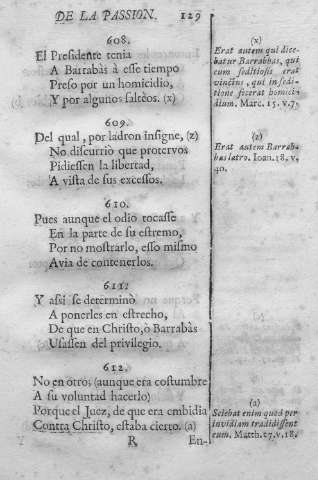 DE LA PASSION. 129
608.
El Presidente tenia
A Barrabàs à esse tiempo
Preso por un homicidio,
Y por algunos saltèos. (x)
609.
Del qual, por ladron insigne, (z)
No discurriò que protervos
Pidiessen la libertad,
A vista de sus excessos.
610.
Pues aunque el odio tocasse
En la parte de su estremo,
Por no mostrarlo, esso mismo
Avia de contenerlos.
611.
Y assi se determinò
A ponerles en estrecho,
De que en Christo, ò Barrabàs
Usassen del privilegio.
612.
No en otro; (aunque era costumbre
A su voluntad hacerlo)
Porque el Juez, de que era embidia
Contra Christo, estaba cierto. (a)
R En-
(x)
Erat autem qui dice
batur Barrabbas, qui
cum seditiosis erat
vinctus, qui in sedi-
tione fecerat homici-
dium. Marc. 15. v. 7.
(z)
Erat autem Barrab-
bas latro. Ioan. 18. v,
40.
(a)
Sciebat enim quod per
invidiam tradidissent
eum. Matth. 27. v. 18.